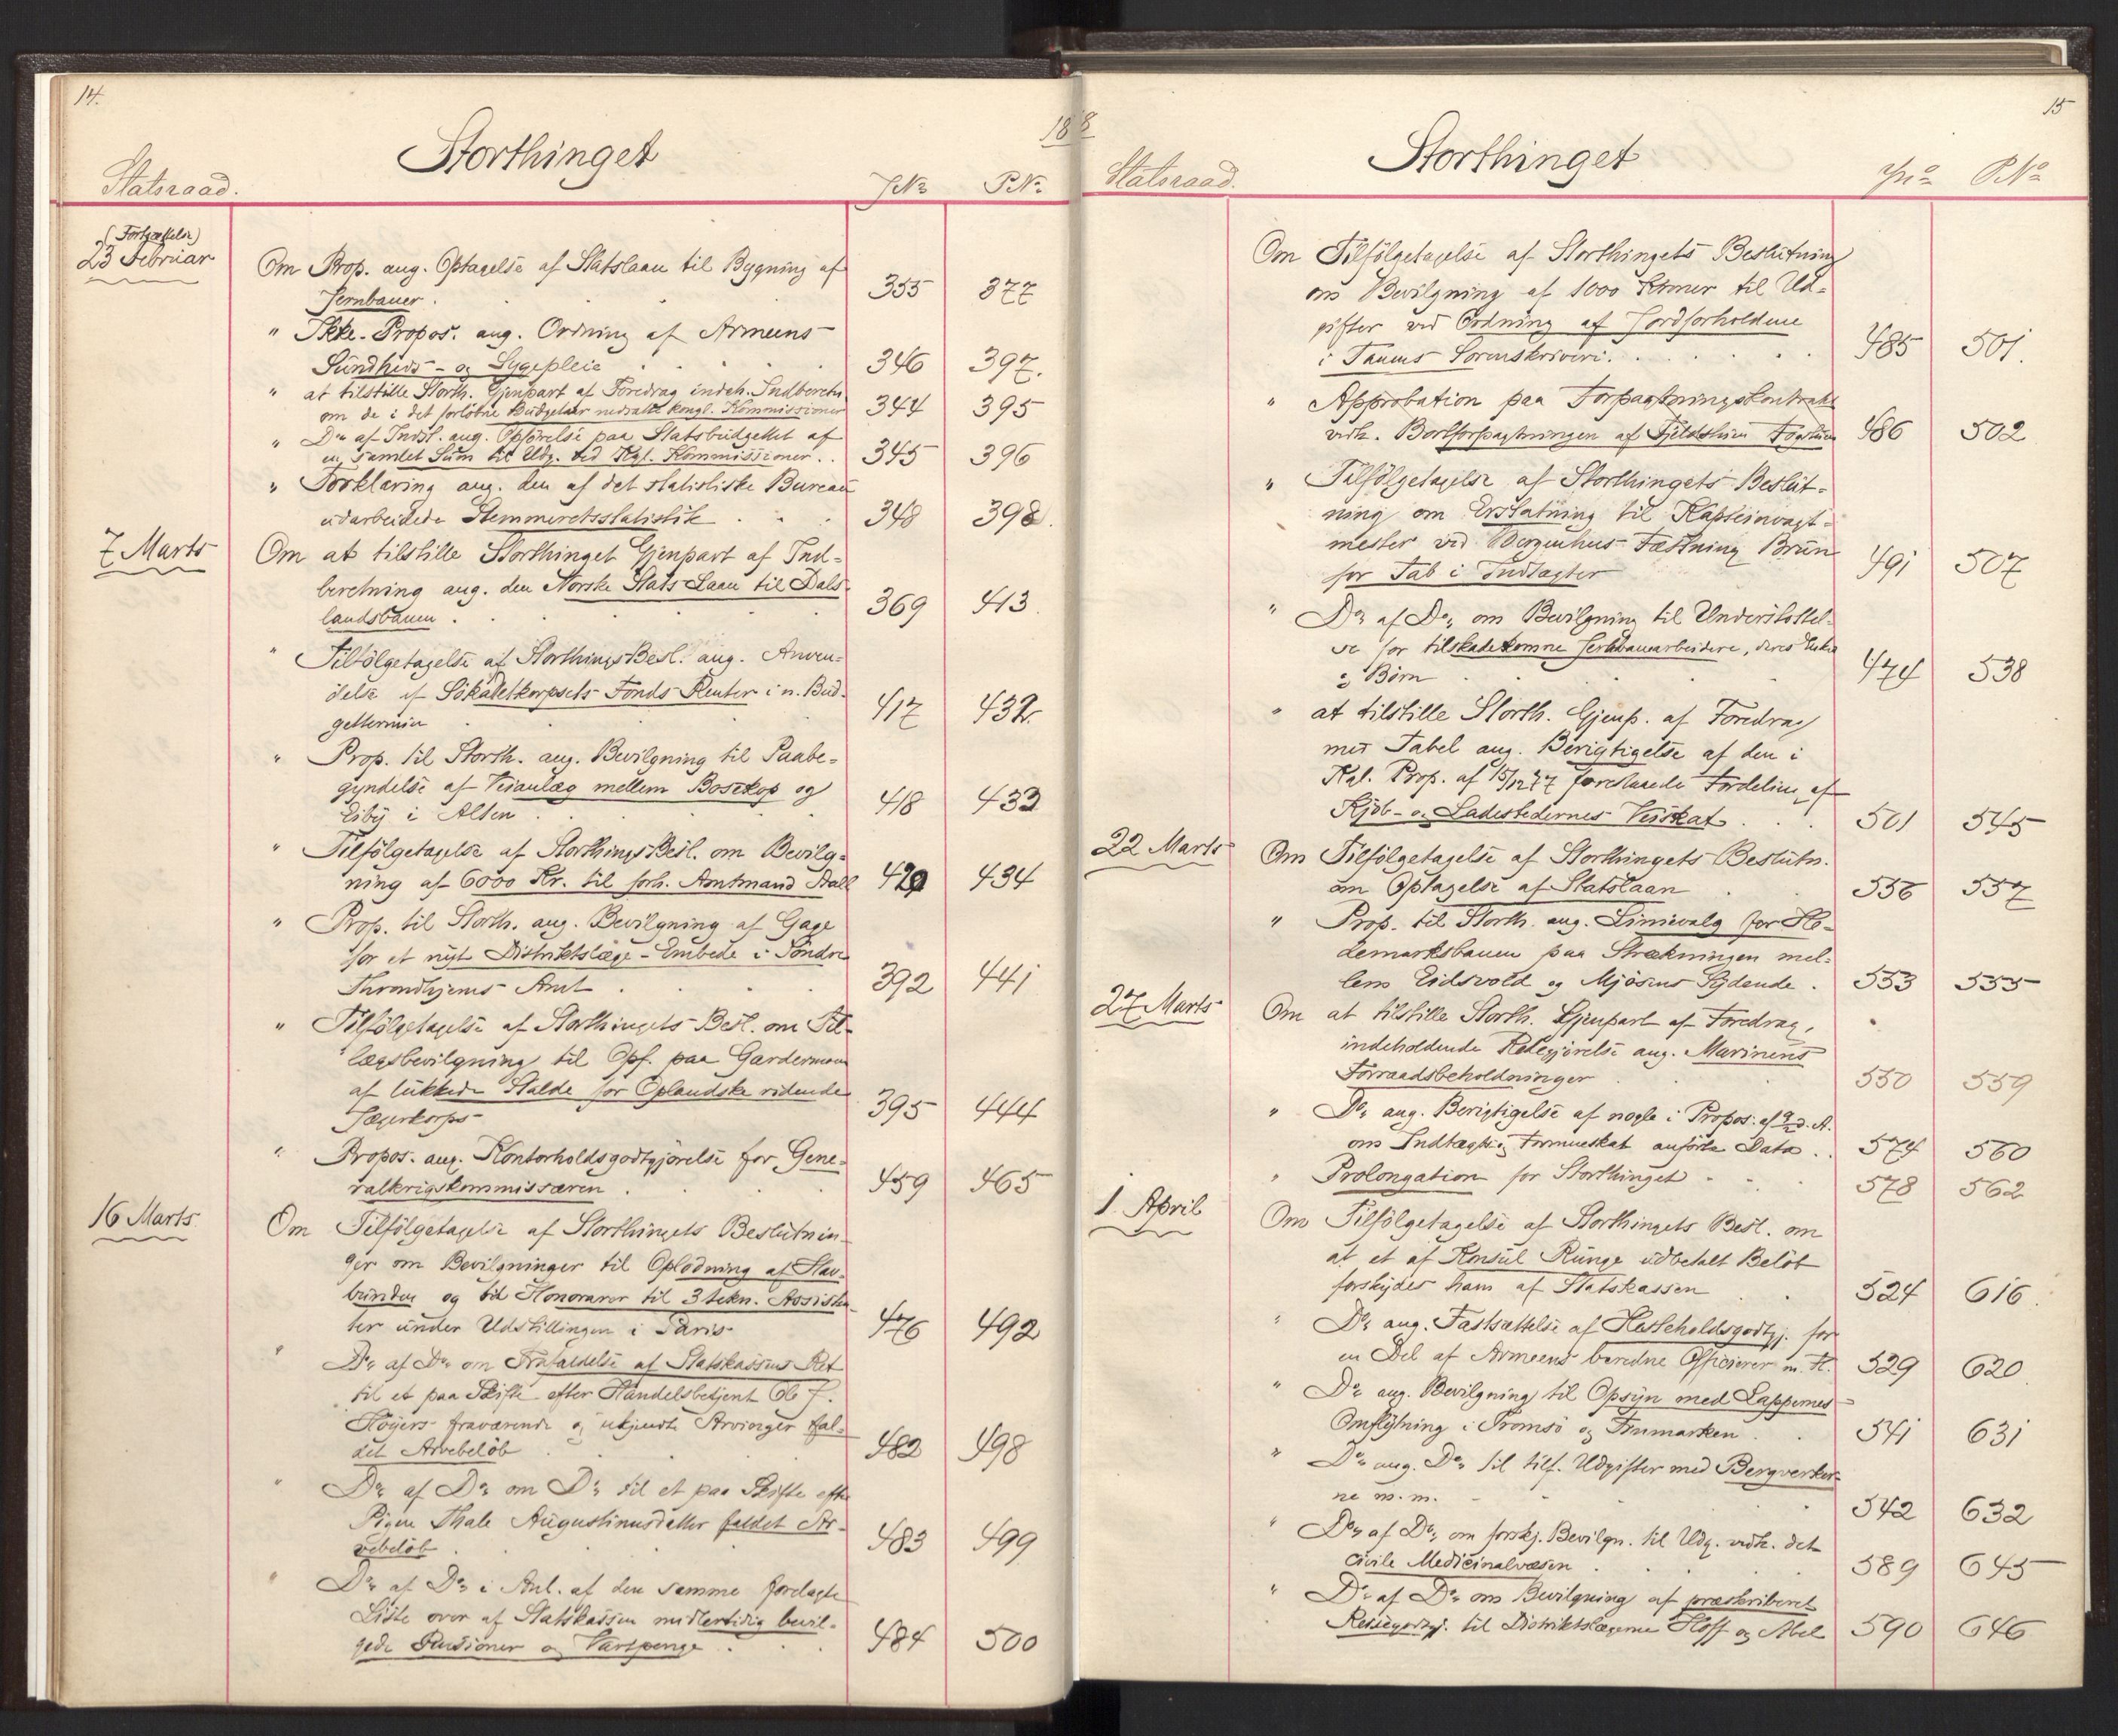 14.
Storthinget
18
Statsraad.
JNo
PNo
(Fortsættelse)
23 Februar
Om Prop. ang. Optagelse af Statslaan til Bygning af
Jernbaner.
355 377
" Ikke-Propos. ang. Ordning af Armeens
Sundheds- og Sygepleie
346 397.
" at tilstille Storth. Gjenpart af Foredrag indeh. Indberetn.
om de i det forløbne Budgetaar nedsatte kongl. Kommissioner
344 395
" Do af Indst. ang. Opførelse paa Statsbudgettet af
en samlet Sum til Udg. ved Kgl. Kommissioner . .
345 396
" Forklaring ang. den af det statistiske Bureau
udarbeidede Stemmeretsstatistik
348 398.
7 Marts
Om at tilstille Storthinget Gjenpart af Ind-
beretning ang. den Norske Stats Laan til Dals-
landsbanen .
369 413.
" Tilfølgetagelse af Storthings Besl. ang. Anven-
delse af Søkadetkorpsets Fonds Renter i n. Bud-
gettermin
417 432.
" Prop. til Storth. ang. Bevilgning til Paabe-
gyndelse af Veianlæg mellem Bosekop og
Eiby i Alten
418 433
" Tilfølgetagelse af Storthings Besl. om Bevilg-
ning af 6000 Kr. til forh. Amtmand Aall
420 434
" Prop. til Storth. ang. Bevilgning af Gage
for et nyt Distriktslæge-Embede i Søndre
Throndhjems Amt
392 441
" Tilfølgetagelse af Storthingets Besl. om Til-
lægsbevilgning til Opf. paa Gardermoen
af lukkede Stalde for Oplandske ridende
Jægerkorps
395 444
" Propos. ang. Kontorholdsgodtgjørelse for Gene-
ralkrigskommissæren
459 465
16 Marts
Om Tilfølgetagelse af Storthingets Beslutnin-
ger om Bevilgninger til Oplodning af Hav-
bunden og til Honorarer til 3 tekn. Assisten-
ter under Udstillingen i Paris
476 492
" Do af Do om Frafaldelse af Statskassens Ret
til et paa Skifte efter Handelsbetjent Ole J.
Høyers fraværende og ukjendte Arvinger fal-
det Arvebeløb
482 498
" Do af Do om Do til et paa Skifte efter
Pigen Thale Augustinusdatter faldet Ar-
vebeløb
483 499
" Do af Do i Anl. af den samme forelagte
Liste over af Statskassen midlertidig bevil-
gede Pensioner og Vartpenge
484 500
15
8
Storthinget
Statsraad.
JNo
PNo
Om Tilfølgetagelse af Storthingets Beslutning
om Bevilgning af 1000 Kroner til Ud-
gifter ved Ordning af Jordforholdene
i Tanens Sorenskriveri.
485 501.
" Approbation paa Forpagtningskontrakt
vedk. Bortforpagtningen af
486 502
" Tilfølgetagelse af Storthingets Beslut-
ning om Erstatning til Kapteinvagt-
mester ved Bergenhus Fæstning Brun
for Tab i Indtægter
491 507
" Do af Do om Bevilgning til Understøttel-
se for tilskadekomne Jernbanearbeidere, deres Enker
og Børn
474 538
" at tilstille Storth. Gjenp. af Foredrag
med Tabel ang. Berigtigelse af den i
Kgl. Prop. af 15/12 77 foreslaaede Fordeling af
Kjøb- og Ladestedernes Veiskat
501 545
22 Marts
Om Tilfølgetagelse af Storthingets Beslutn.
om Optagelse af Statslaan
556 557
" Prop. til Storth. ang. Linievalg for He-
demarksbanen paa Strækningen mel-
lem Eidsvold og Mjøsens Sydende .
553 555
27 Marts
Om at tilstille Storth. Gjenpart af Foredrag,
indeholdende Redegjørelse ang. Marinens
Forraadsbeholdninger
550 559
" Do ang. Berigtigelse af nogle i Propos: af 9/2 d. A.
om Indtægts og Formueskat anførte Data . .
574 560
" Prolongation for Storthinget
578 562
1. April
Om Tilfølgetagelse af Storthingets Besl. om
at et af Konsul Runge udbetalt Beløb
forskydes ham af Statskassen
524 616.
" Do ang. Fastsættelse af Hesteholdsgodtgj. for
en Del af Armeens beredne Officierer m. fl.
529 620
" Do ang. Bevilgning til Opsyn med Lappernes
Omflytning i Tromsø og Finmarken
541 631
" Do ang. Do til tilf. Udgifter med Bergverker-
ne m. m.
542 632
" Do af Do, om forskj. Bevilgn. til Udg. vedk. det
civile Medicinalvæsen
589 645
" Do af Do om Bevilgning af præskriberet
Reisegodtgj. til Distriktslægerne Hoff og Abel
590 646